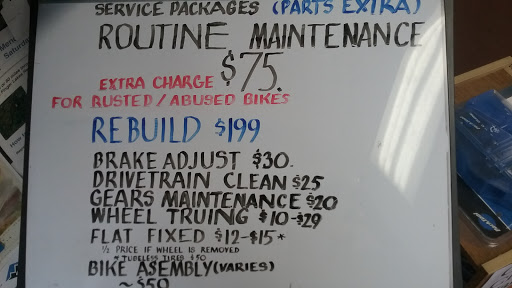 SERVICE PACKAGES (PARTS EXTRA)
ROUTINE MAINTENANCE
$75.
EXTRA CHARGE
FOR RUSTED / ABUSED BIKES
REBUILD $199
BRAKE ADJUST $30.
DRIVETRAIN CLEAN $25
GEARS MAINTENANCE $20
WHEEL TRUING $10-$29
FLAT FIXED $12-$15*
½ PRICE IF WHEEL IS REMOVED
* TUBELESS TIRES $50
BIKE ASEMBLY (VARIES)
~$50